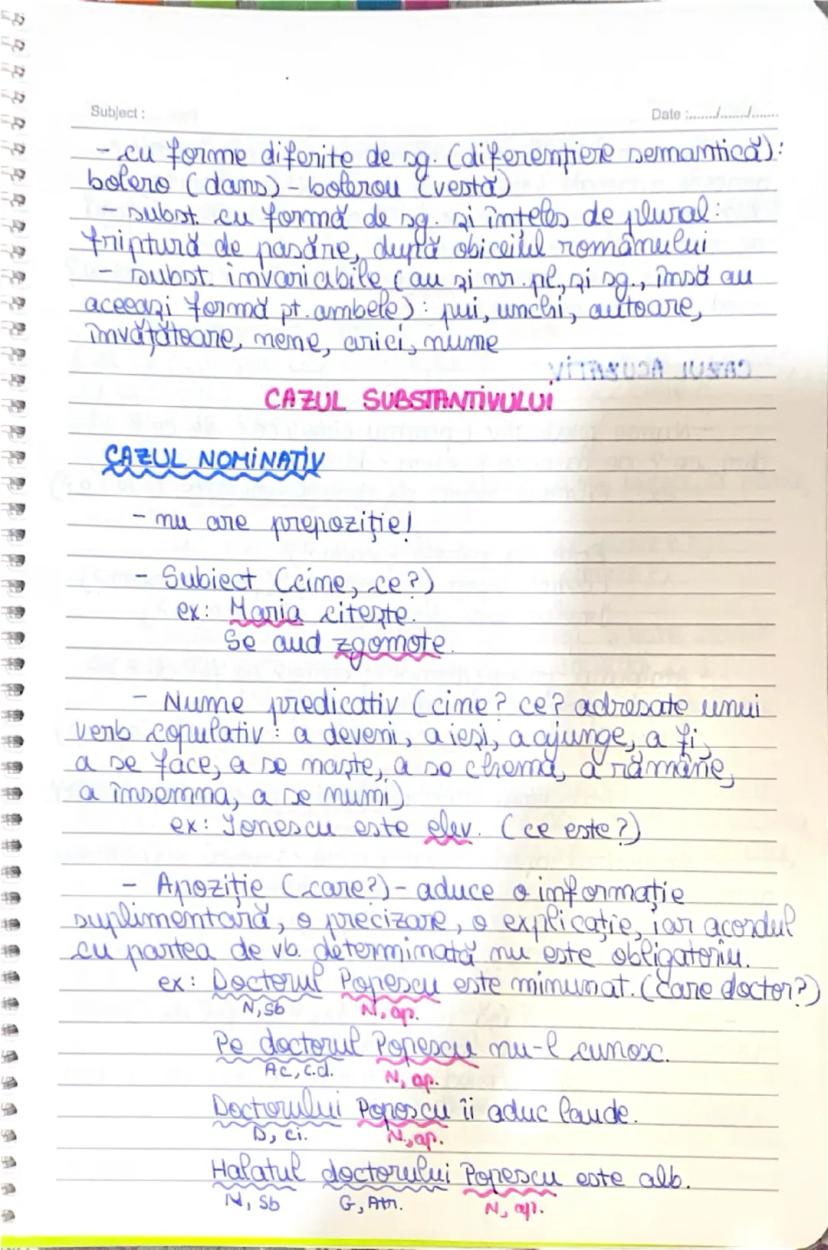 Subject :
Date :....../....../......
- cu forme diferite de sg. (diferențiere semantică):
bolero (dans) - bolerou (vestă)
- subst. cu formă de sg. și înțeles de plural:
friptură de pasăre, după obiceiul românului
- subst. invariabile (au și nr. pl, și sg., însă au
aceeași formă pt. ambele): pui, unchi, autoare,
învățătoare, nume, arici, nume
CAZUL ACUZATIV
CAZUL SUBSTANTIVULUI
CAZUL NOMINATIV
- nu are prepoziție!
- Subiect (cine, ce?)
ex: Maria citește.
Se aud zgomote.
- Nume predicativ (cine? ce? adresate unui
verb copulativ: a deveni, a ieși, a ajunge, a fi,
a se face, a se naște, a se chema, a rămâne,
a însemna, a se numi)
ex: Ionescu este elev. (ce este?)
- Apoziție (care?) - aduce o informație
suplimentară, o precizare, o explicație, iar acordul
cu partea de vb. determinată nu este obligatoriu.
ex: Doctorul Popescu este minunat. (care doctor?)
N, Sb N, ap.
Pe doctorul Popescu nu-l cunosc.
Ac, c.d. N, ap.
Doctorului Popescu îi aduc laude.
D, ci. N, ap.
Halatul doctorului Popescu este alb.
N, Sb G, Atr. N, ap.